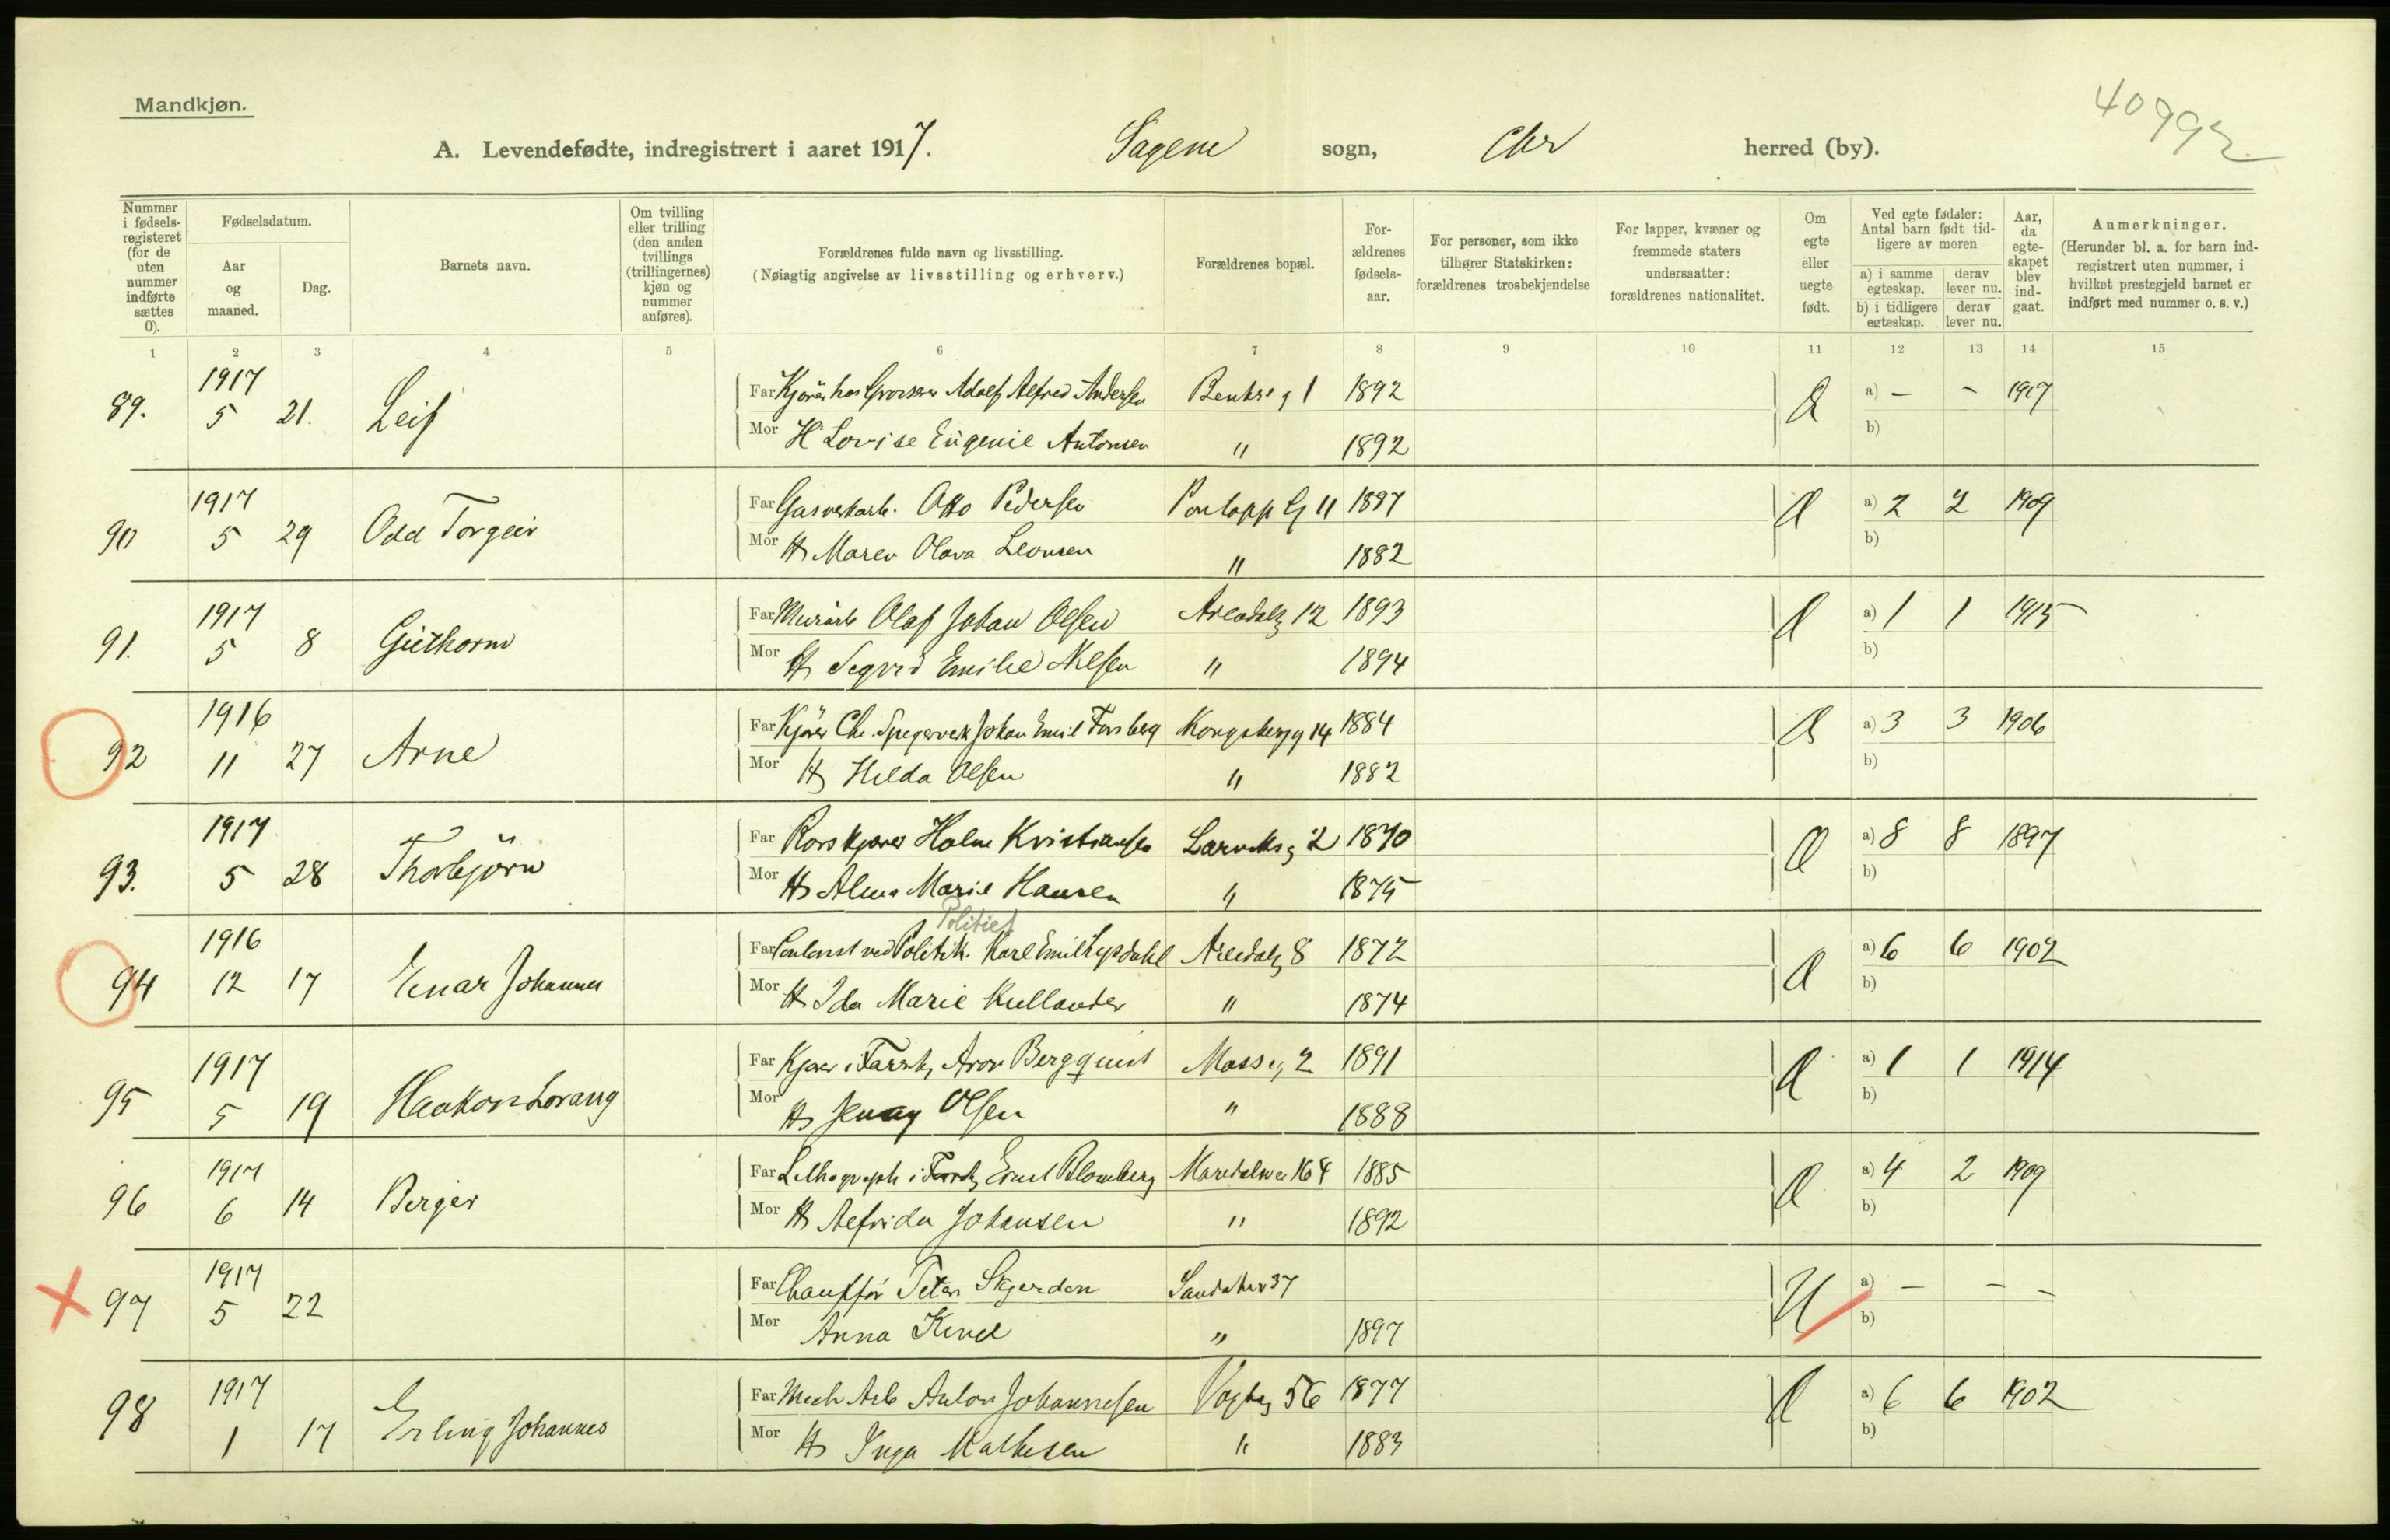 Mandkjøn.
40992
A. Levendefødte, indregistrert i aaret 1917. Sagene sogn, Chr herred (by).
Nummer i fødselsregisteret (for de uten nummer indførte sættes 0).
Fødselsdatum.
Aar og maaned.
Dag.
Barnets navn.
Om tvilling eller trilling (den anden tvillings (trillingernes) kjøn og nummer anføres).
Forældrenes fulde navn og livsstilling.
(Nøiagtig angivelse av livsstilling og erhverv.)
Forældrenes bopæl.
Forældrenes fødselsaar.
For personer, som ikke tilhører Statskirken: forældrenes trosbekjendelse
For lapper, kvæner og fremmede staters undersaatter: forældrenes nationalitet.
Om egte eller uegte født.
Ved egte fødsler: Antal barn født tidligere av moren
a) i samme egteskap. derav lever nu.
b) i tidligere egteskap. derav lever nu.
Aar, da egteskapet blev indgaat.
Anmerkninger.
(Herunder bl. a. for barn indregistrert uten nummer, i hvilket prestegjeld barnet er indført med nummer o. s. v.)
1 2 3 4 5 6 7 8 9 10 11 12 13 14 15
89. 1917 5 21. Leif Far Kjører hos Grosserer Adolf Alfred Andersen Bentseg 1 1892 Æ a) – – 1917
Mor H Lovise Eugenie Antonsen " 1892 b)
90 1917 5 29 Odd Torgeir Far Gasverkarb. Otto Pedersen Pontopp G 11 1887 Æ a) 2 2 1909
Mor H Maren Olava Leonsen " 1882 b)
91. 1917 5 8 Guthorm Far Murarb Olaf Johan Olsen Arendalg 12 1893 Æ a) 1 1 1915
Mor H Sigrid Emilie Nilsen " 1894 b)
92 1916 11 27 Arne Far Kjører Chr. Spigerverk Johan Emil Forsberg Kongsbergg 14 1884 Æ a) 3 3 1906
Mor H Hilda Olsen " 1882 b)
93. 1917 5 28 Thorbjörn Far Holm Kristiansen Larviksg 2 1870 Æ a) 8 8 1897
Mor H Alma Marie Hansen " 1875 b)
Politiet
94 1916 12 17 Einar Johannes Far ved Politik. Karl Emil Arendalg 8 1872 Æ a) 6 6 1902
Mor H Ida Marie Kullander " 1874 b)
95 1917 5 19 Haakon Lorang Far Kjører i Aron Bergquist Mosseg 2 1891 Æ a) 1 1 1914
Mor H Jenny Olsen " 1888 b)
96 1917 6 14 Berger Far Lithograph i Ernst Blomberg Maridalsvei 164 1885 Æ a) 4 2 1909
Mor H Alfrida Johansen " 1892 b)
97 1917 5 22 Far Chauffør Peter Skjerden Sandakerv 37 U a) – – –
Mor Anna 1897 b)
98 1917 1 17 Erling Johannes Far Mech Arb Anton Johannesen Vogtsg 56 1877 Æ a) 6 6 1902
Mor H Inga Mathisen " 1883 b)